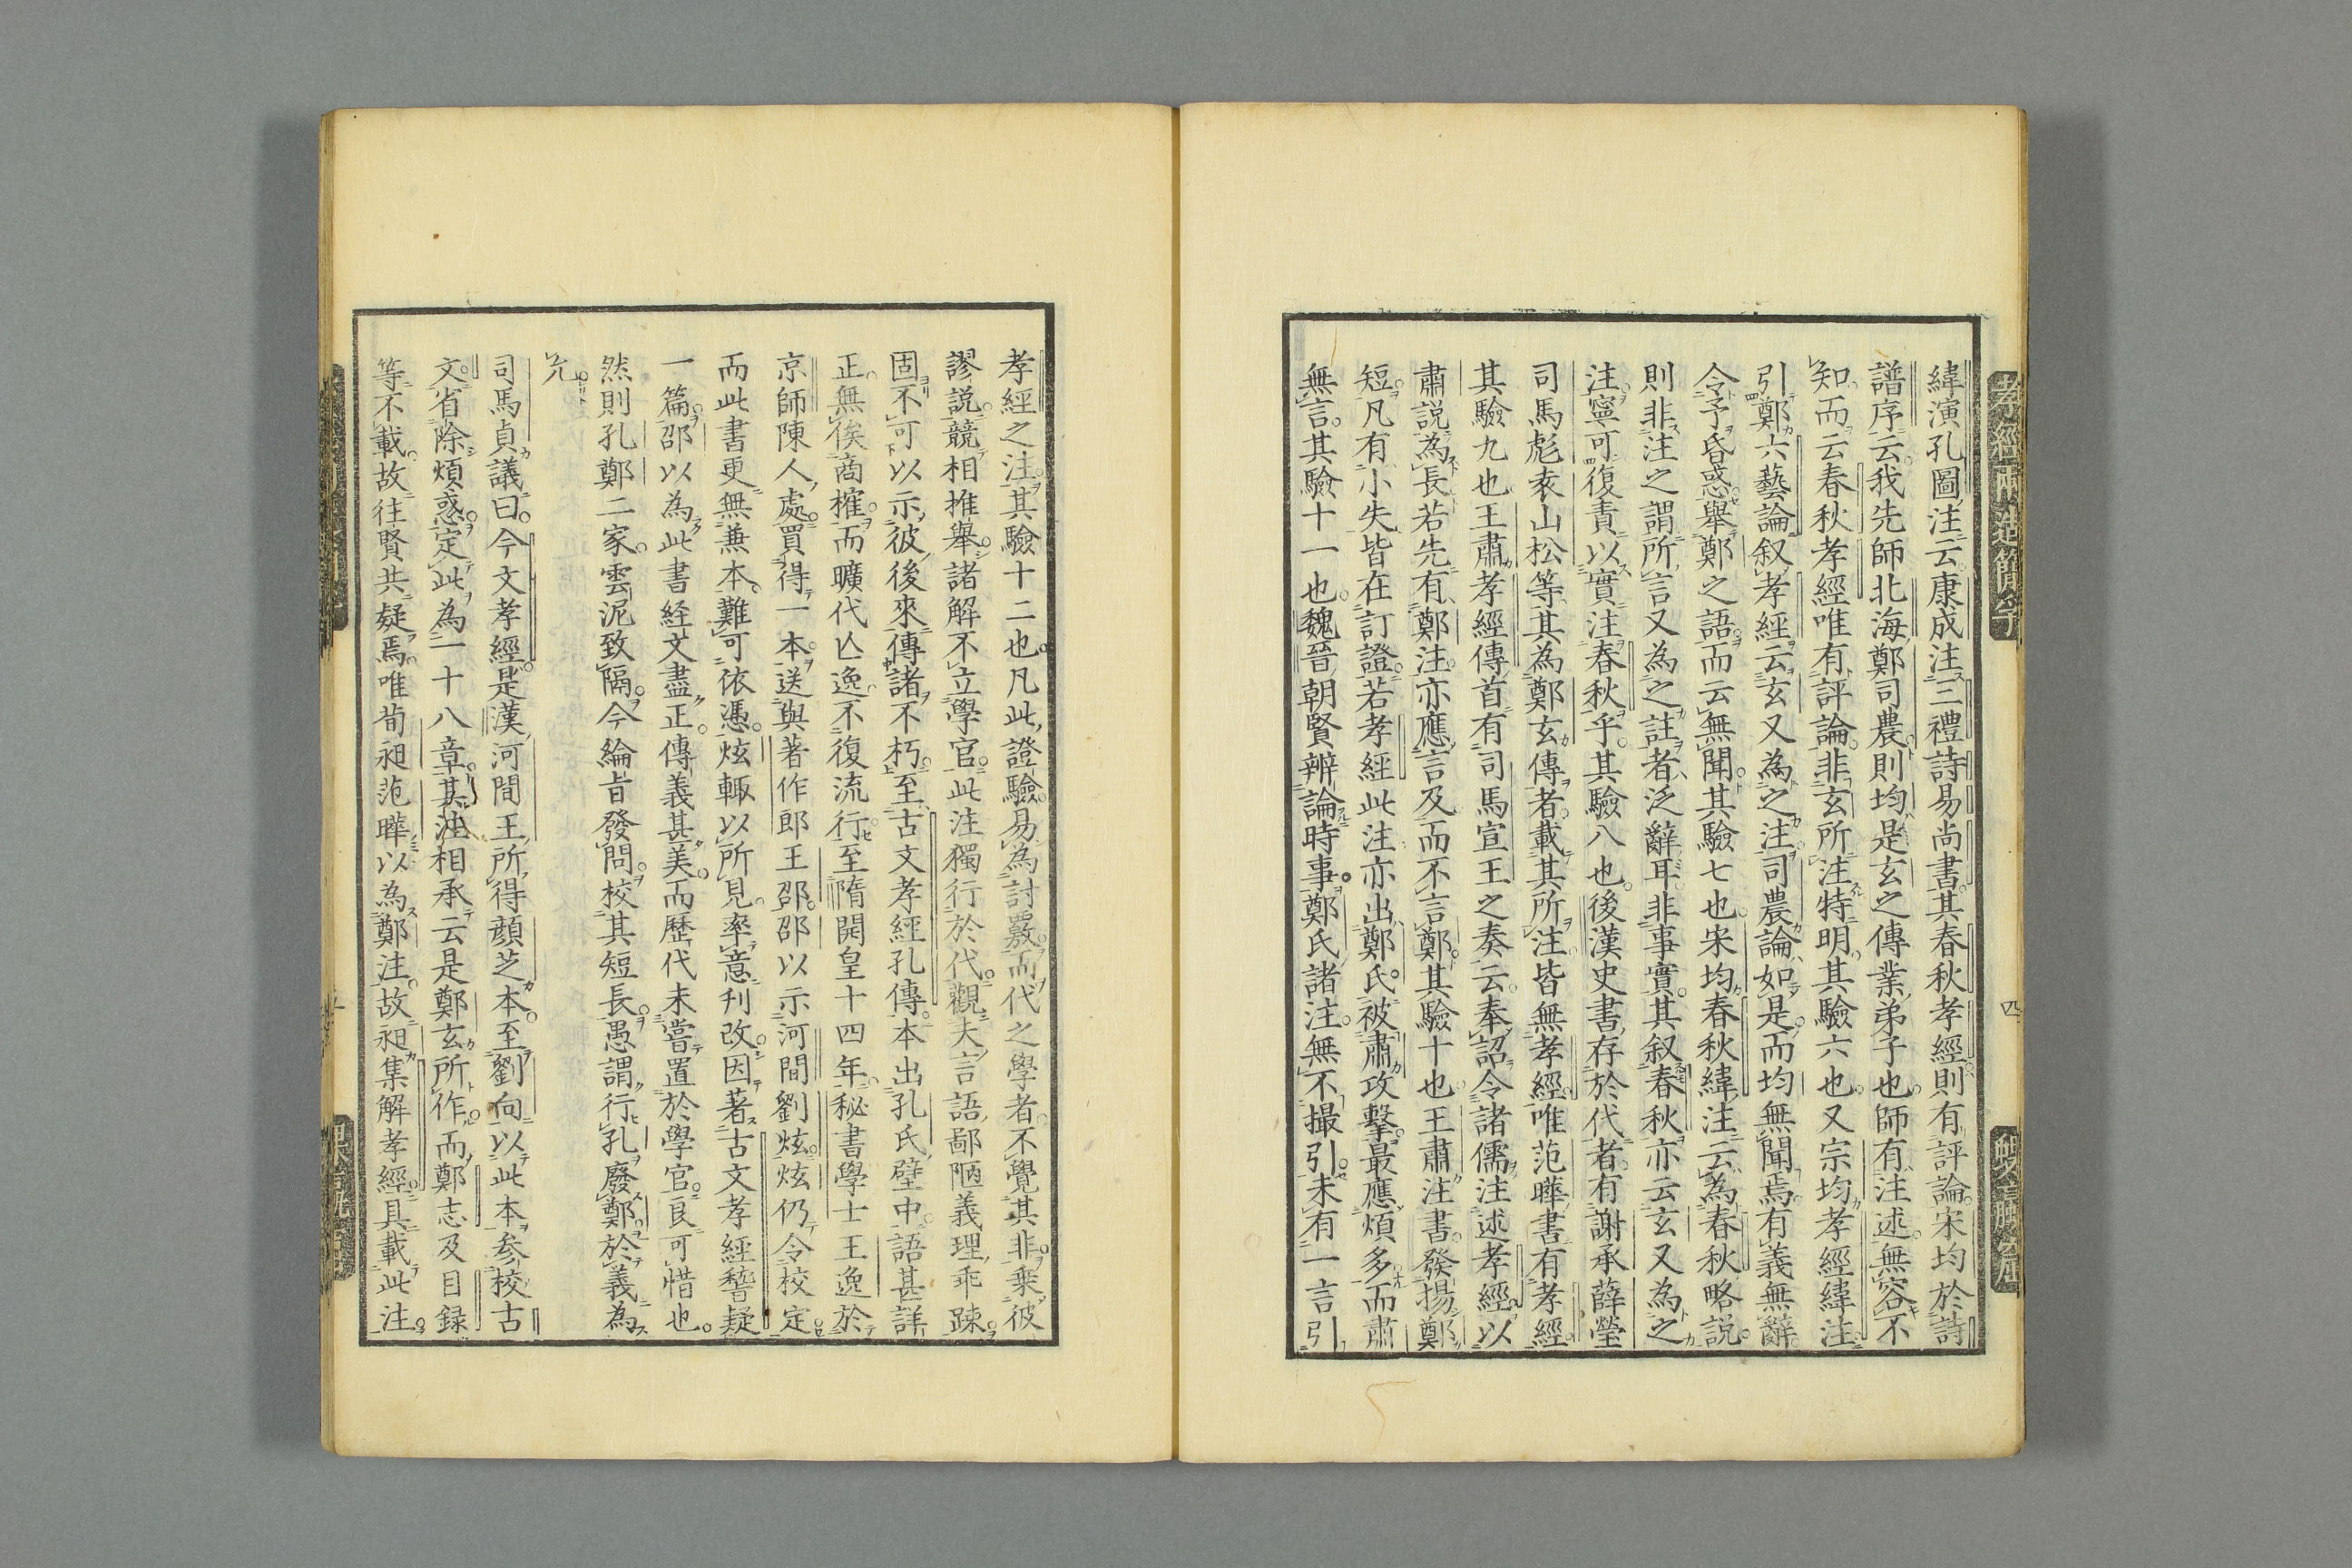 緯演孔圖注云康成注三禮詩易尚書其春秋孝經則有評論宋均於詩
譜序云我先師北海鄭司農則均是玄之傳業弟子也師有注述無容不
知而云春秋孝經唯有評論非玄所注特明其驗六也又宗均孝經緯注
引鄭六藝論叙孝經云玄又為之注司農論如是而均無聞焉有義無辭
令予昏惑舉鄭之語而云無聞其驗七也宋均春秋緯注云為春秋略說
則非注之謂所言又為之註者泛辭耳非事實其叙春秋亦云玄又為之
注寧可復責以實注春秋乎其驗八也後漢史書存於代者有謝承薛瑩
司馬彪袁山松等其為鄭玄傳者載其所注皆無孝經唯范曄書有孝經
其驗九也王肅孝經傳首有司馬宣王之奏云奉詔令諸儒注述孝經以
肅說為長若先有鄭注亦應言及而不言鄭其驗十也王肅注書發揚鄭
短凡有小失皆在訂證若孝經此注亦出鄭氏被肅攻擊最應煩多而肅
無言其驗十一也魏晉朝賢辨論時事鄭氏諸注無不撮引未有一言引
四
孝經之注其驗十二也凡此證驗易為討覈而代之學者不覺其非乗彼
謬說競相推舉諸解不立學官此注獨行於代觀夫言語鄙陋義理乖踈
固不可以示彼後來傳諸不朽至古文孝經孔傳本出孔氏壁中語甚詳
正無俟商榷而曠代亾逸不復流行至隋開皇十四年秘書學士王逸於
京師陳人處買得一本送與著作郎王邵邵以示河間劉炫炫仍令校定
而此書更無兼本難可依憑炫輒以所見率意刊改因著古文孝經嵆疑
一篇邵以為此書経文盡正傳義甚美而歷代未嘗置於學官良可惜也
然則孔鄭二家雲泥致隔今綸旨發問校其短長愚謂行孔廢鄭於義為
允
司馬貞議曰今文孝經是漢河間王所得顔芝本至劉向以此本参校古
文省除煩惑定此為一十八章其注相承云是鄭玄所作而鄭志及目録
等不載故往賢共疑焉唯荀昶范曄以為鄭注故昶集解孝經具載此注